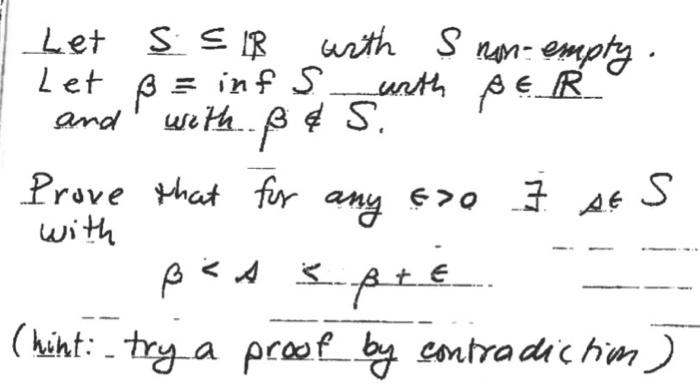 Let S ⊆ ℝ with S non-empty.
Let β = inf S with β ∈ ℝ
and with β ∉ S.
Prove that for any ε>0 ∃ s∈ S
with
β < s < β + ε
(hint: try a proof by contradiction)